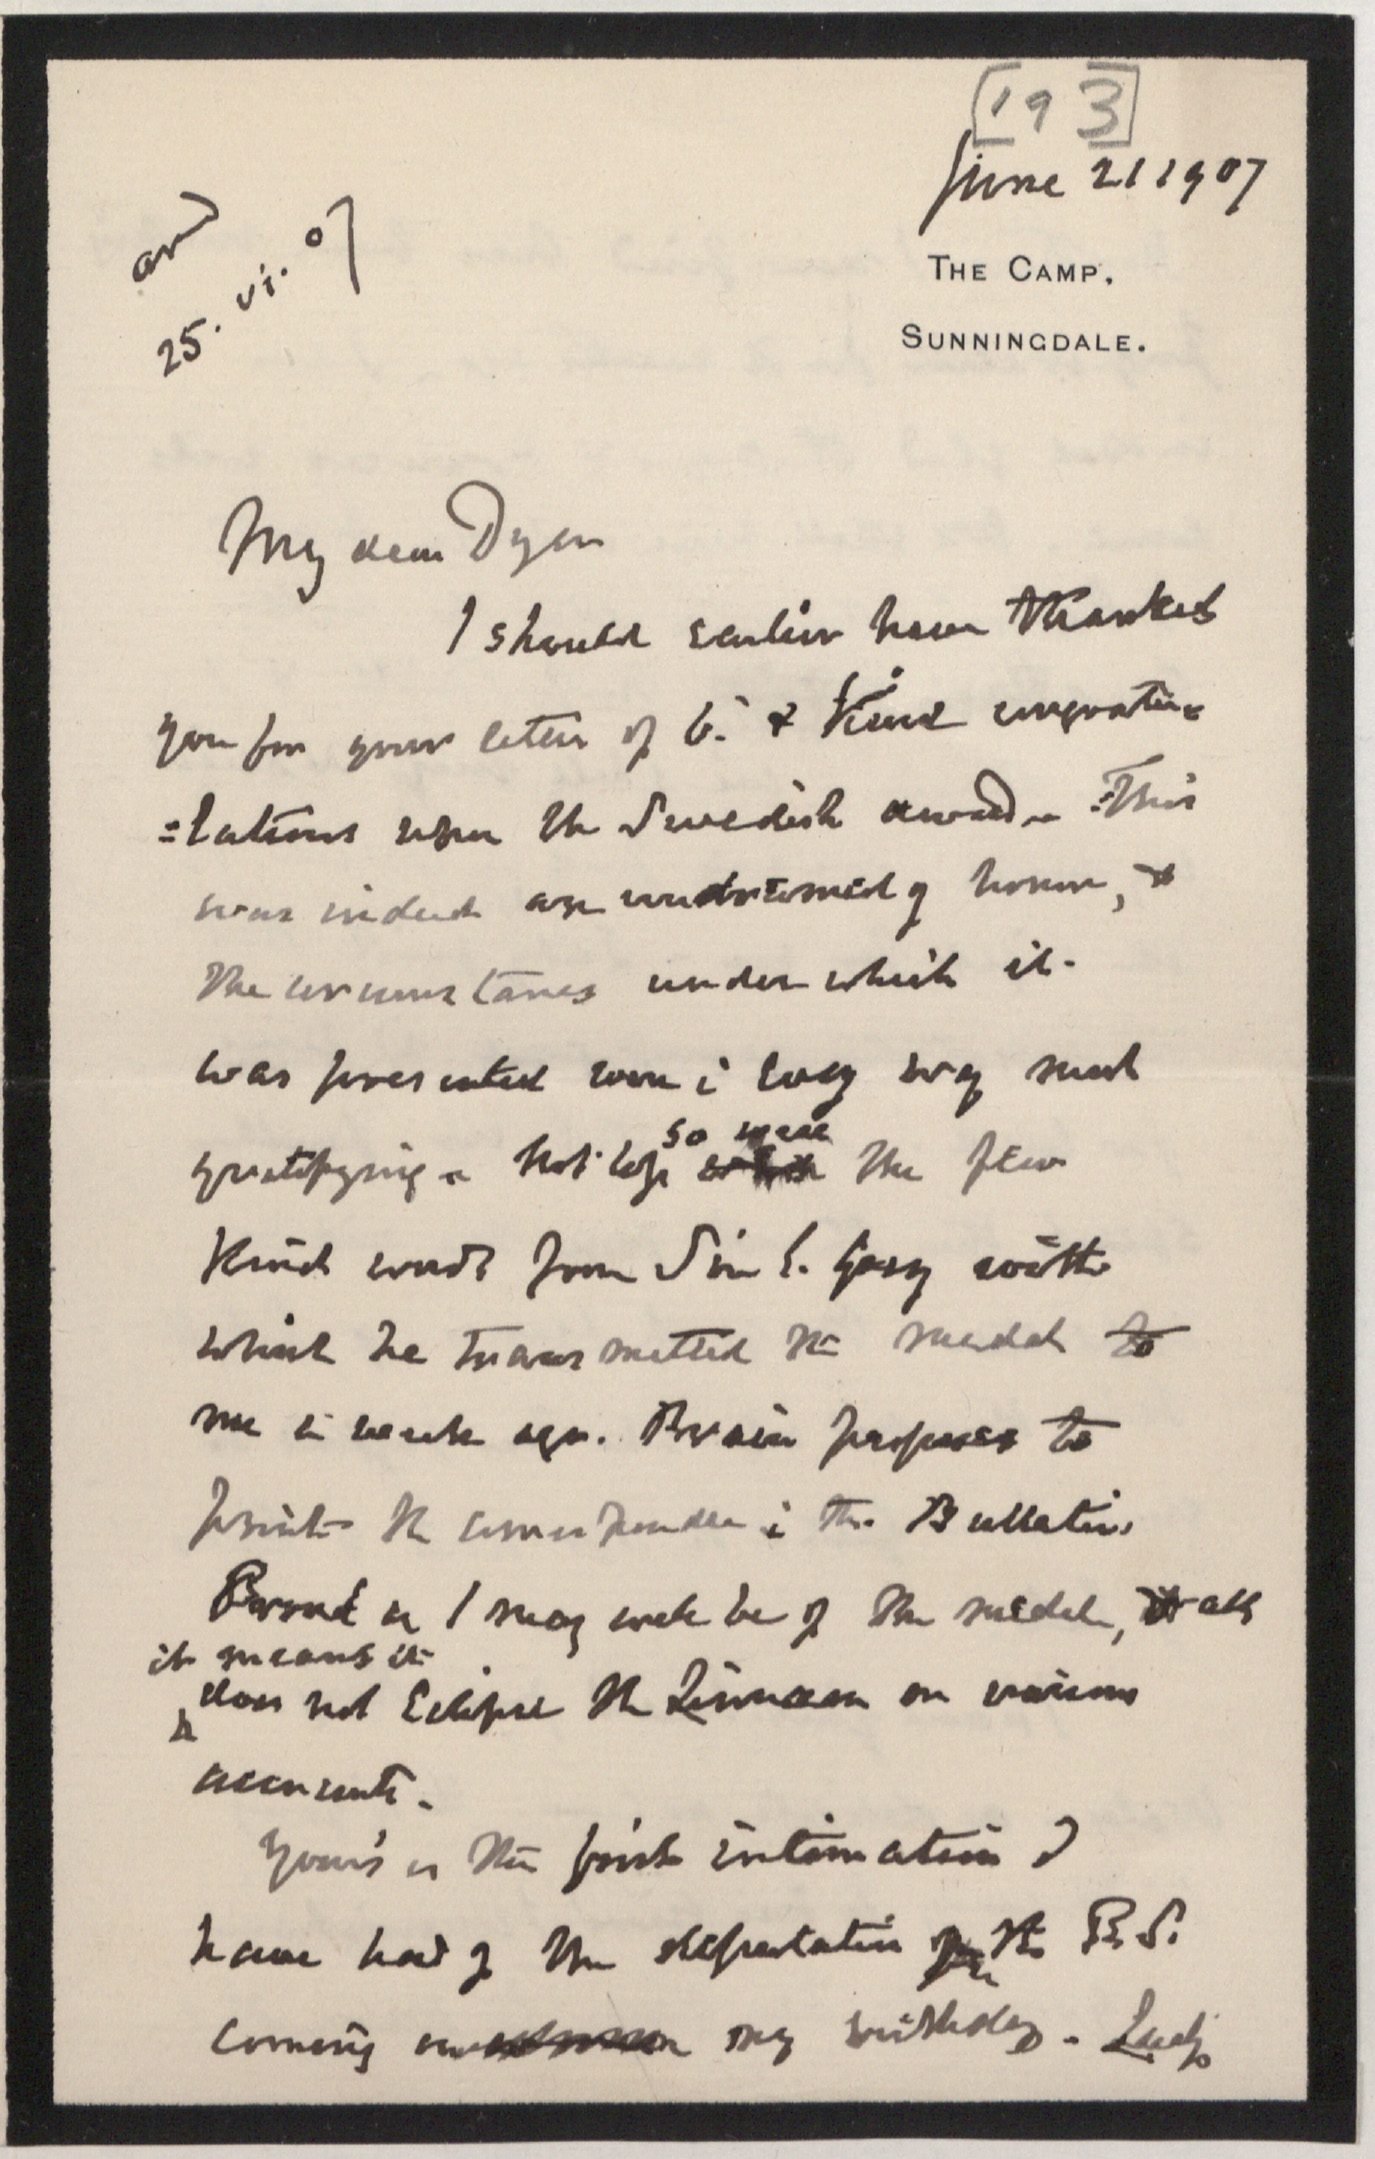 [193]
June 21 1907
and
25. vi. 07
THE CAMP,
SUNNINGDALE.
My dear Dyer
I should earlier have thanked
you for your letter of & kind congratu
=lations upon the Swedish award. This
was indeed an undreamed of honor, &
the circumstances under which it
was presented were i every way most
gratifying. Not less so were the few
kind words from Sir E. Grey with
which he transmitted the medal to
me a week ago. Brain proposes to
print the correspondce i the Bulletin.
Proud as I may well be of the medal, & all
it means it
does not Eclipse the Linnean on various
accounts.
Yours is the first intimation I
have had of the deputation from the R.S.
coming on my birthday. Lady